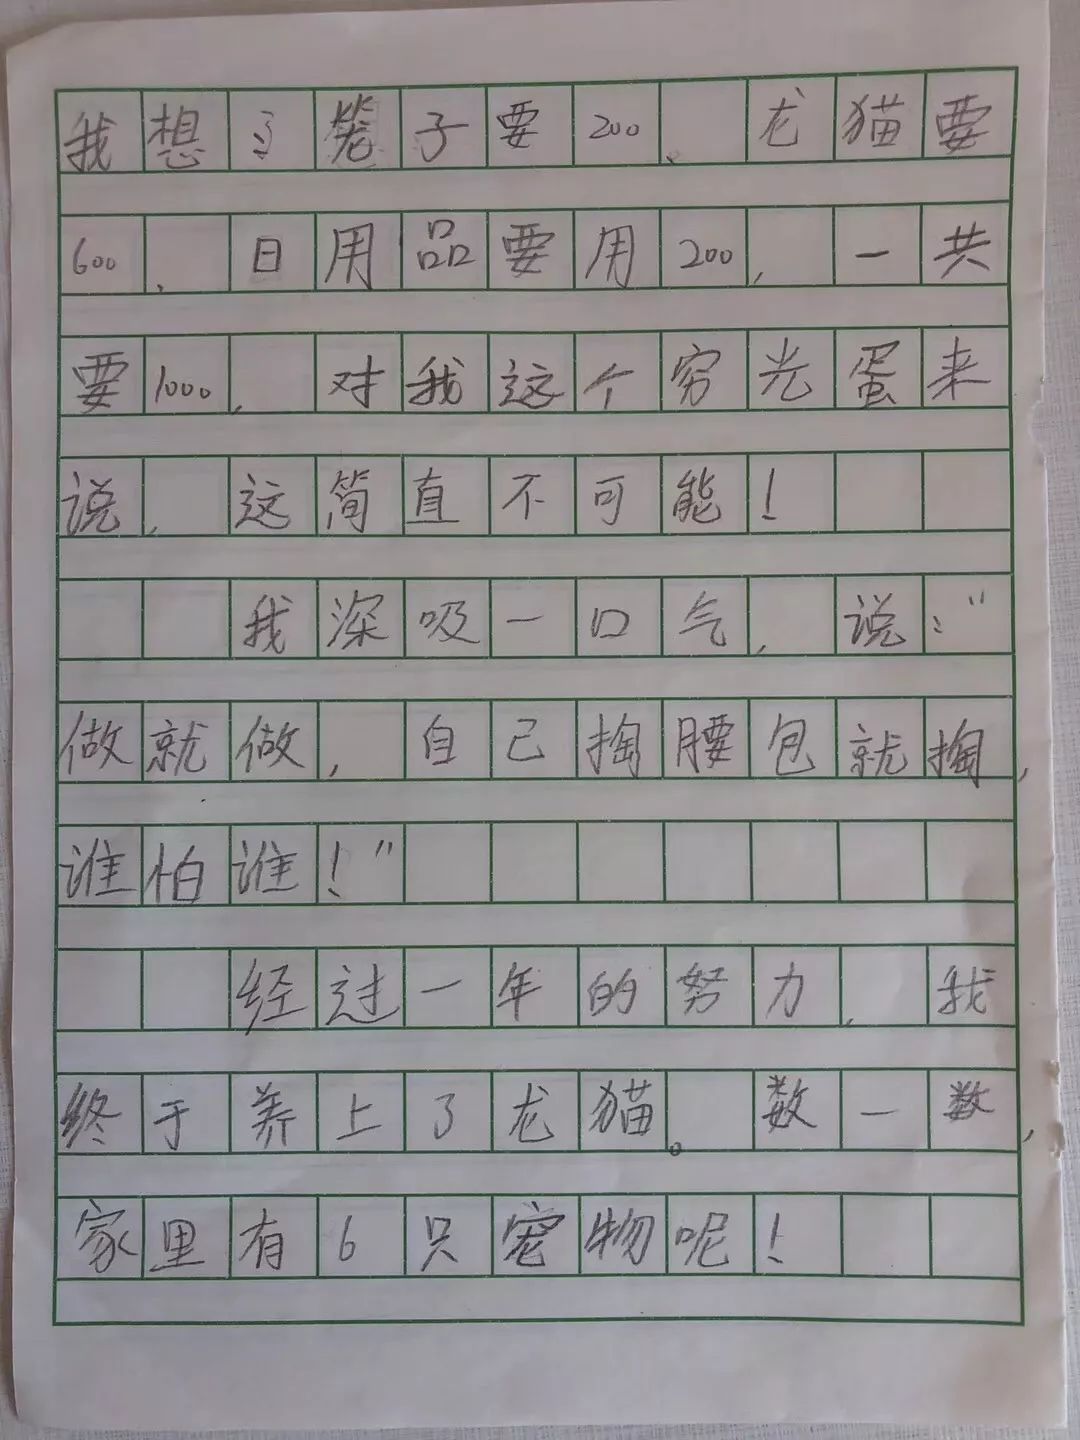 我想了笼子要200、龙猫要
600，日用品要用200，一共
要1000，对我这个穷光蛋来
说，这简直不可能！
我深吸一口气，说：“
做就做，自己掏腰包就掏，
谁怕谁！”
经过一年的努力，我
终于养上了龙猫。数一数，
家里有6只宠物呢！